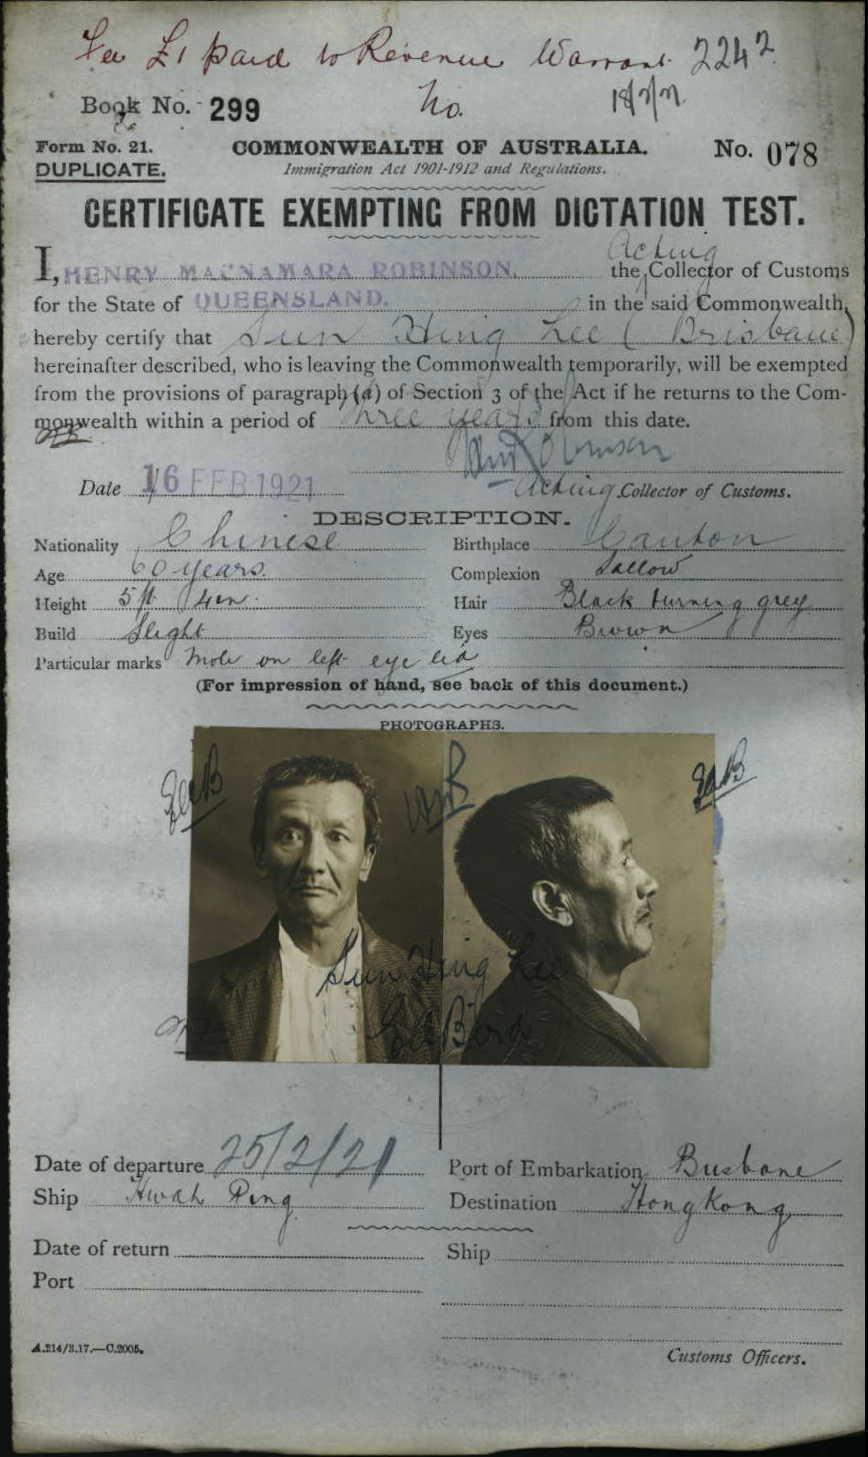 Fee £1 paid to Revenue Warrant 2242
Book No. 299 No.
Form No. 21. COMMONWEALTH OF AUSTRALIA. No. 078
DUPLICATE. Immigration Act 1901-1912 and Regulations.
CERTIFICATE EXEMPTING FROM DICTATION TEST.
Acting
I, HENRY MACNAMARA ROBINSON, the Collector of Customs
for the State of QUEENSLAND. in the said Commonwealth,
hereby certify that Sun Hing Lee (Brisbane)
hereinafter described, who is leaving the Commonwealth temporarily, will be exempted
from the provisions of paragraph (a) of Section 3 of the Act if he returns to the Com-
monwealth within a period of three years from this date.
Date 16 FEB 1921 Acting Collector of Customs.
DESCRIPTION.
Nationality Chinese Birthplace Canton
Age 60 years. Complexion Sallow
Height 5 ft 4 in. Hair Black turning grey
Build Slight Eyes Brown
Particular marks Mole on left eye lid
(For impression of hand, see back of this document.)
PHOTOGRAPHS.
Sun Hing Lee
Date of departure 25/2/21 Port of Embarkation Brisbane
Ship Hwah Ping Destination Hong Kong
Date of return Ship
Port
A.214/3.17.—C.2005. Customs Officers.